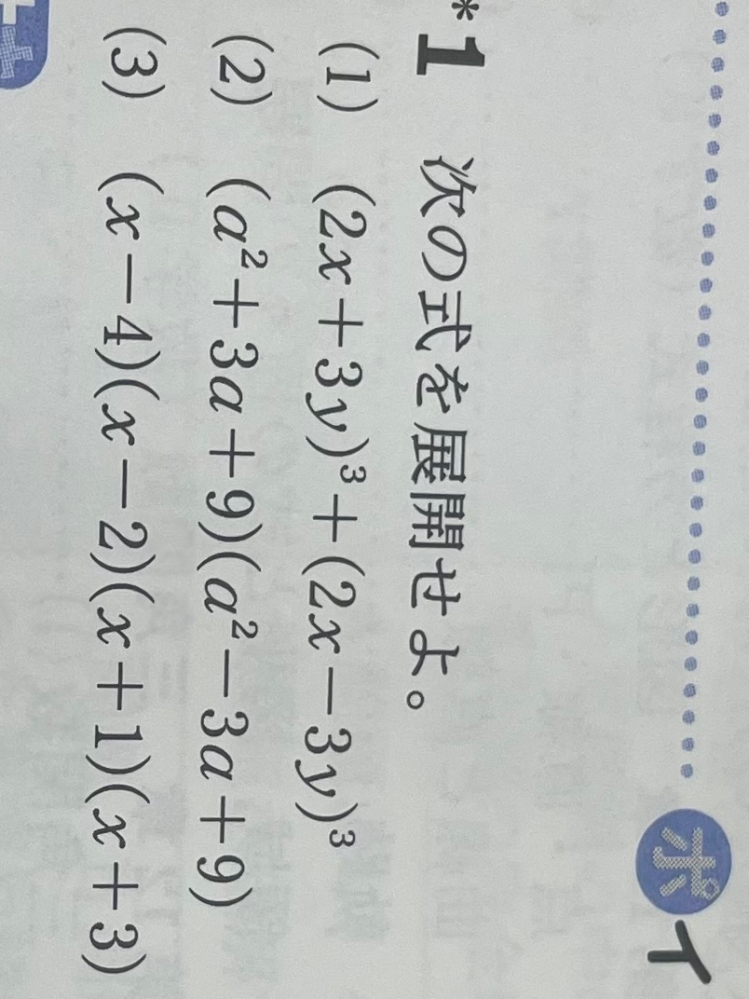 *1 次の式を展開せよ。
(1) (2x+3y)³+(2x-3y)³
(2) (a²+3a+9)(a²-3a+9)
(3) (x-4)(x-2)(x+1)(x+3)
ポイ